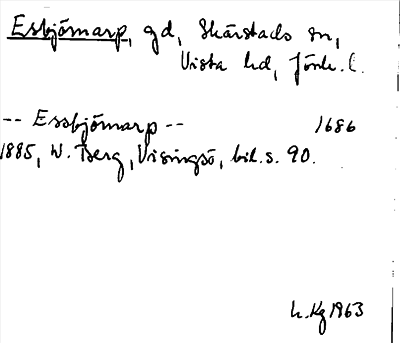 Esbjörnarp, gd, Skärstads sn,
Vista hd, Jönk. l.
-- Essbjörnarp -- 1686
1885, W. Berg, Visingsö, bil. s. 90.
h. Kg 1963